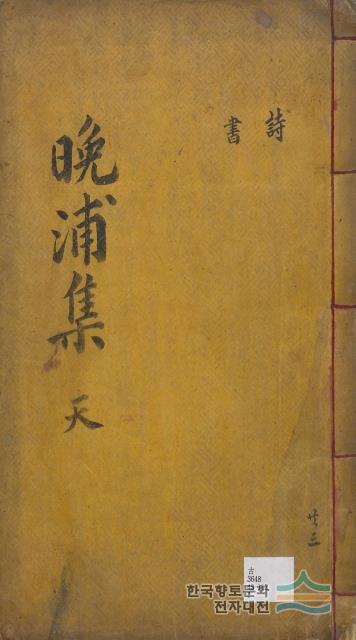 詩
書
晚浦集 天
共三
古
3648
한국향토문화
전자대전